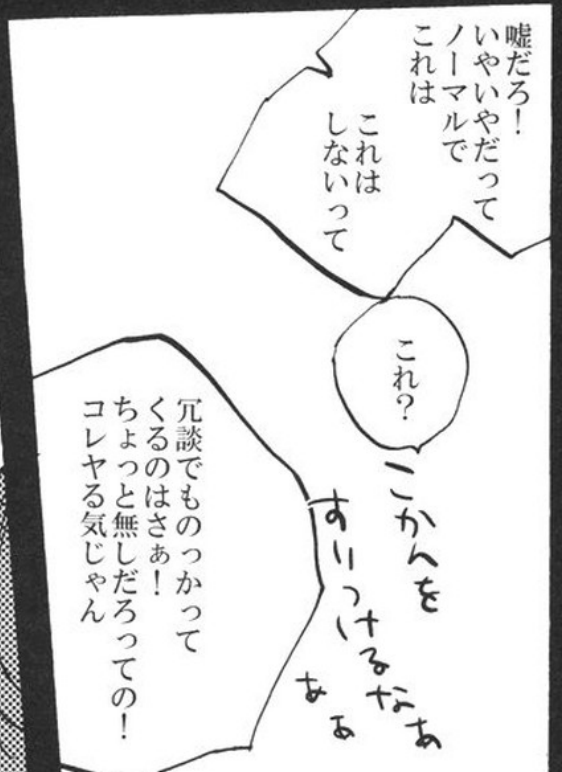 嘘だろ！
いやいやだって
ノーマルで
これは
これは
しないって
これ？
こかんを
すりつけるなぁ
ぁぁ
冗談でものっかって
くるのはさぁ！
ちょっと無しだろっての！
コレヤる気じゃん